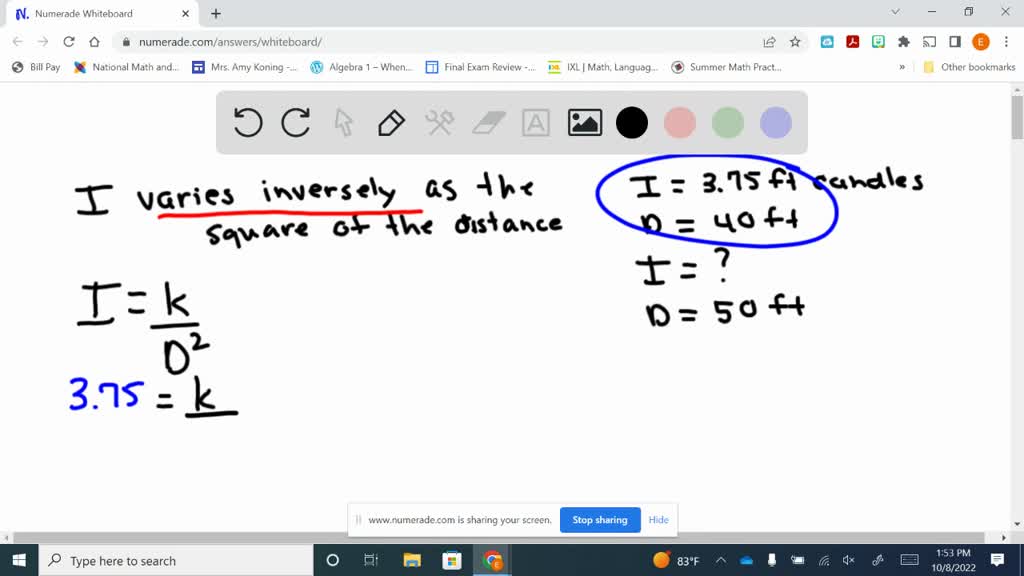 Numerade Whiteboard
numerade.com/answers/whiteboard/
E
Bill Pay
National Math and...
Mrs. Amy Koning -...
Algebra 1 – When...
Final Exam Review -...
IXL | Math, Languag...
Summer Math Pract...
»
Other bookmarks
A
I varies inversely as the
square of the distance
I = 3.75 ft candles
D = 40 ft
I = ?
D = 50 ft
I = k
D²
3.75 = k
www.numerade.com is sharing your screen.
Stop sharing
Hide
Type here to search
83°F
1:53 PM
10/8/2022